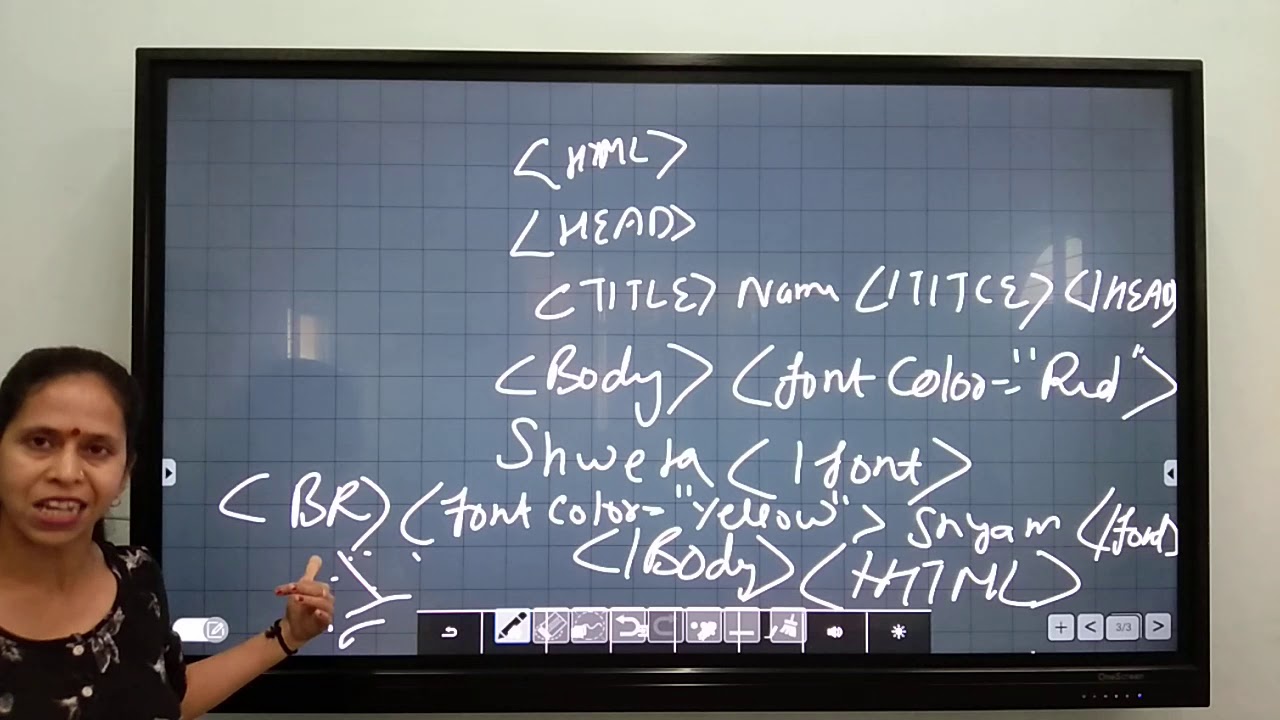 <HTML>
<HEAD>
<TITLE> Name </TITLE> </HEAD
<Body> <font Color="Red">
Shweta </font>
<BR> <font Color="Yellow"> Shyam </font>
</Body> <HTML>
3/3
OneScreen